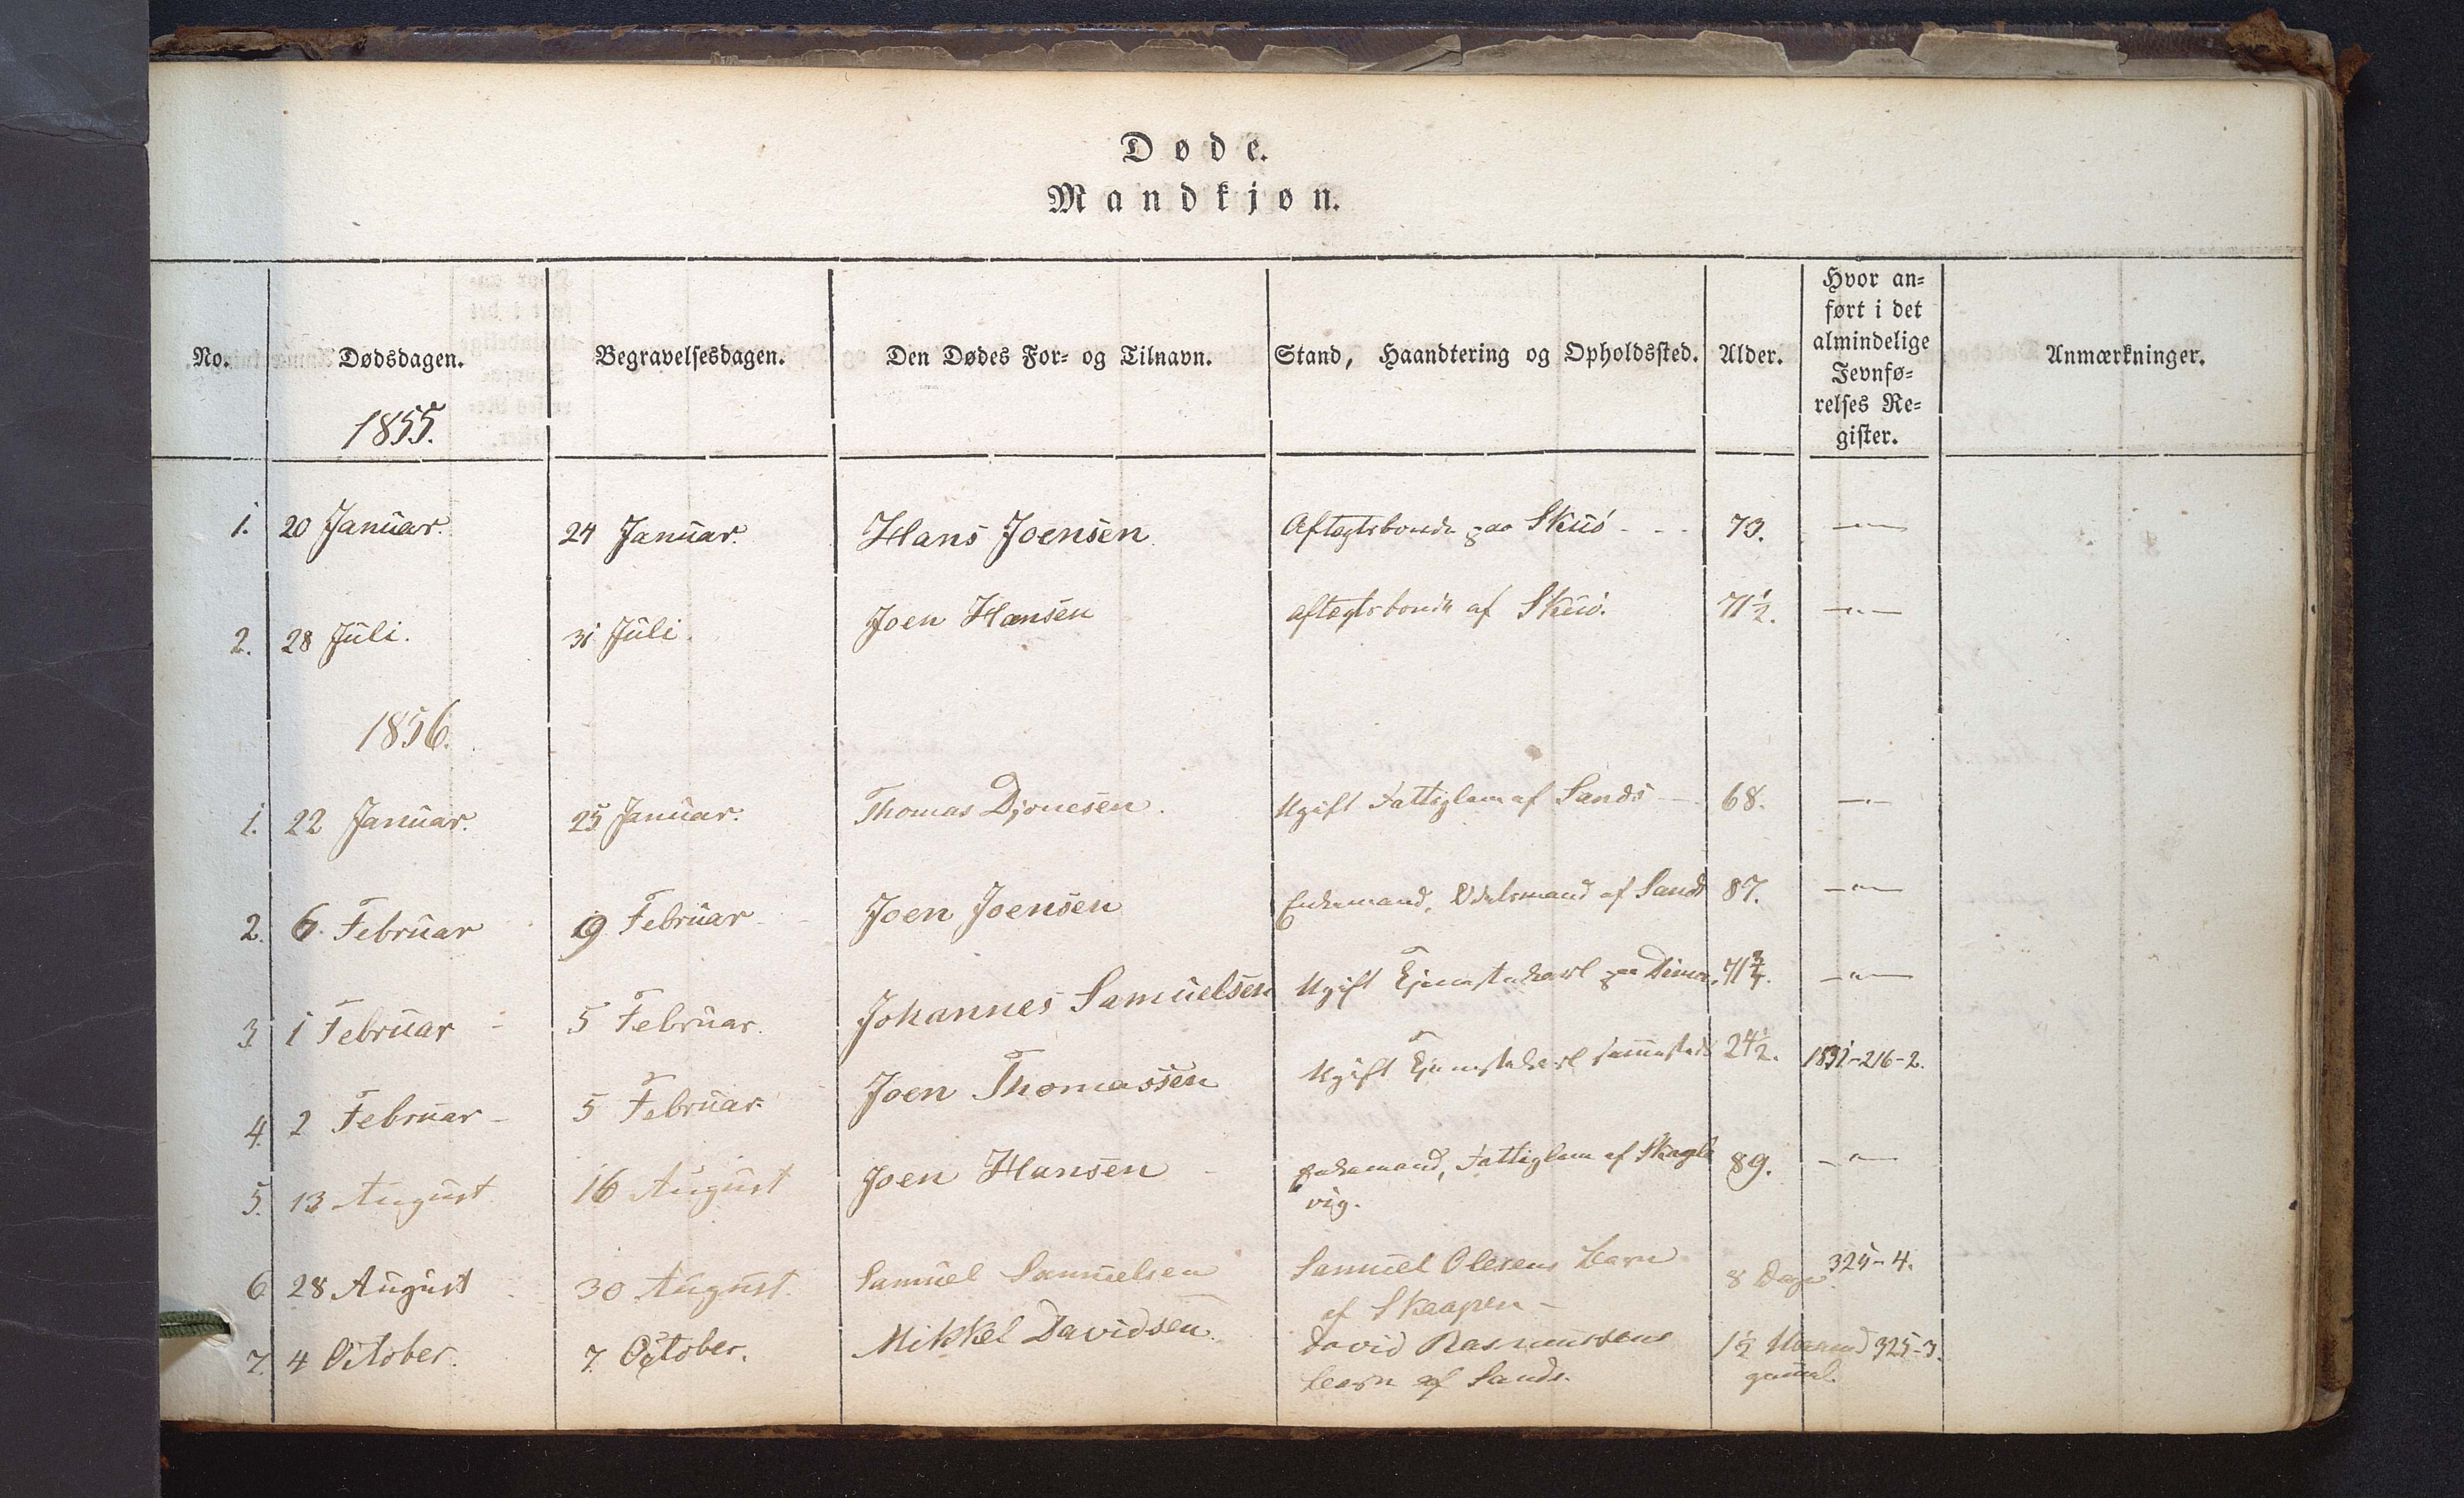 Døde.
Mandkjøn.
No. Dødsdagen. Begravelsesdagen. Den Dødes For- og Tilnavn. Stand, Haandtering og Opholdssted. Alder. Hvor an-
ført i det
almindelige
Jevnfø-
relses Re-
gister. Anmærkninger.
1855.
1. 20 Januar. 24 Januar. Hans Joensen Aftægtsbonde paa Skuö - - 73. —"—
2. 28 Juli. 31 Juli. Joen Hansen Aftægtsbonde af Skuö. 71½. —"—
1856.
1. 22 Januar. 25 Januar. Thomas Djonesen. Ugift Fattiglem af Sands — 68. —"—
2. 6 Februar 9 Februar Joen Joensen Enkemand, Odelsmand af Sand 87. —"—
3. 1 Februar 5 Februar. Johannes Samuelsen Ugift Tjenestekarl paa Dimon, 71¾. —"—
4. 2 Februar - 5 Februar. Joen Thomassen Ugift Tjenestekarl sammested 24½. 1831-216-2.
5. 13 August 16 August Joen Hansen Enkemand, Fattiglem af Skaale
vig. 89. —"—
6 28 August 30 August. Samuel Samuelsen Samuel Olesens Barn
af Skaapen - 8 Dage. 325-4.
7. 4 October. 7. October. Mikkel Davidsen. David Rasmussens
barn af Sands. 1½ Maaned
gammel. 325-3.